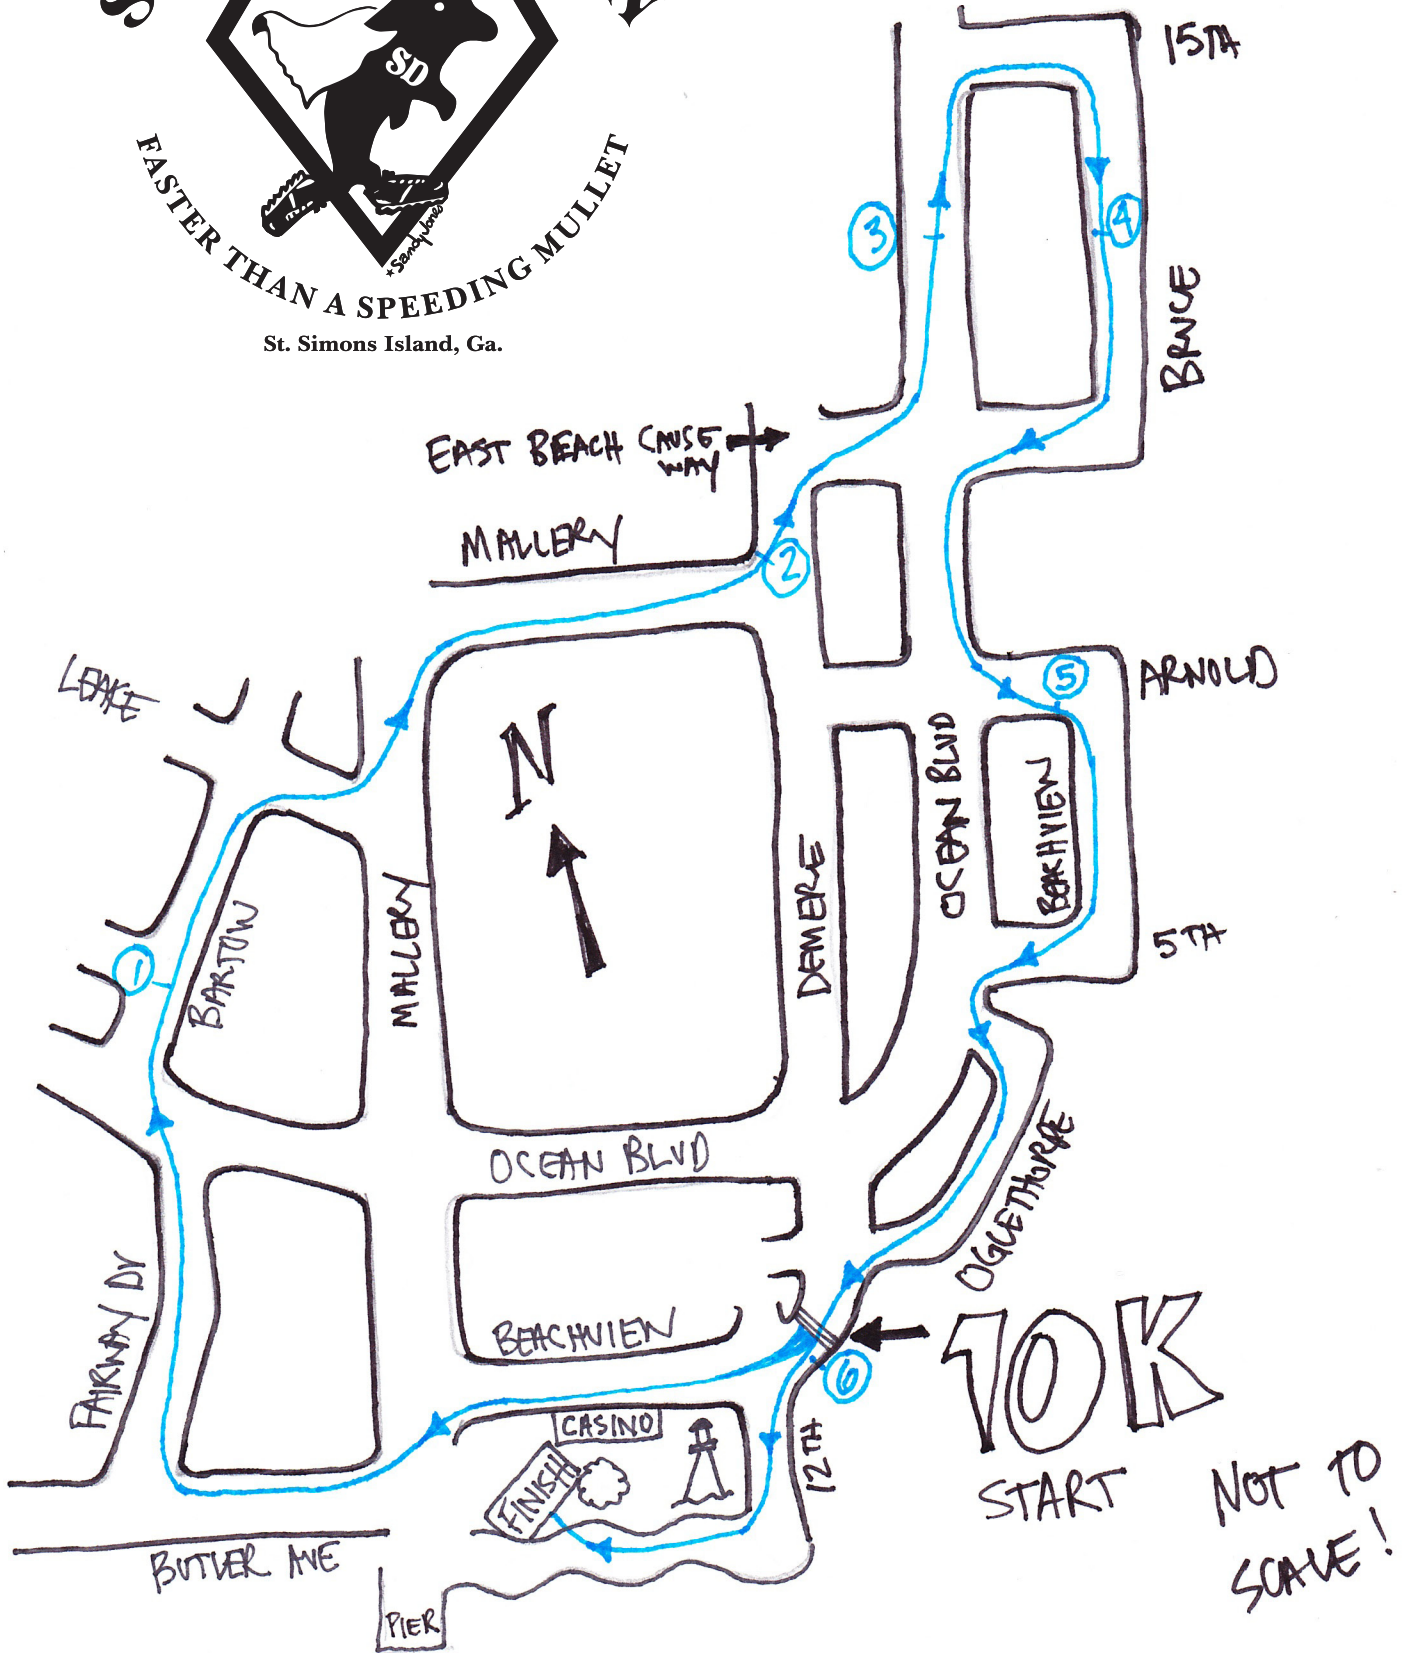 SD
*SandyJones
FASTER THAN A SPEEDING MULLET
St. Simons Island, Ga.
15TH
3
4
BRUCE
EAST BEACH CAUSE
WAY
MALLERY
2
LEAKE
ARNOLD
5
N
OCEAN BLVD
BEACHVIEW
DEMERE
MALLERY
BARTOW
1
5TH
OCEAN BLVD
OGLETHORPE
FAIRWAY Dr
BEACHVIEW
6
10K
START
CASINO
FINISH
12TH
NOT TO
SCALE!
BUTLER AVE
PIER